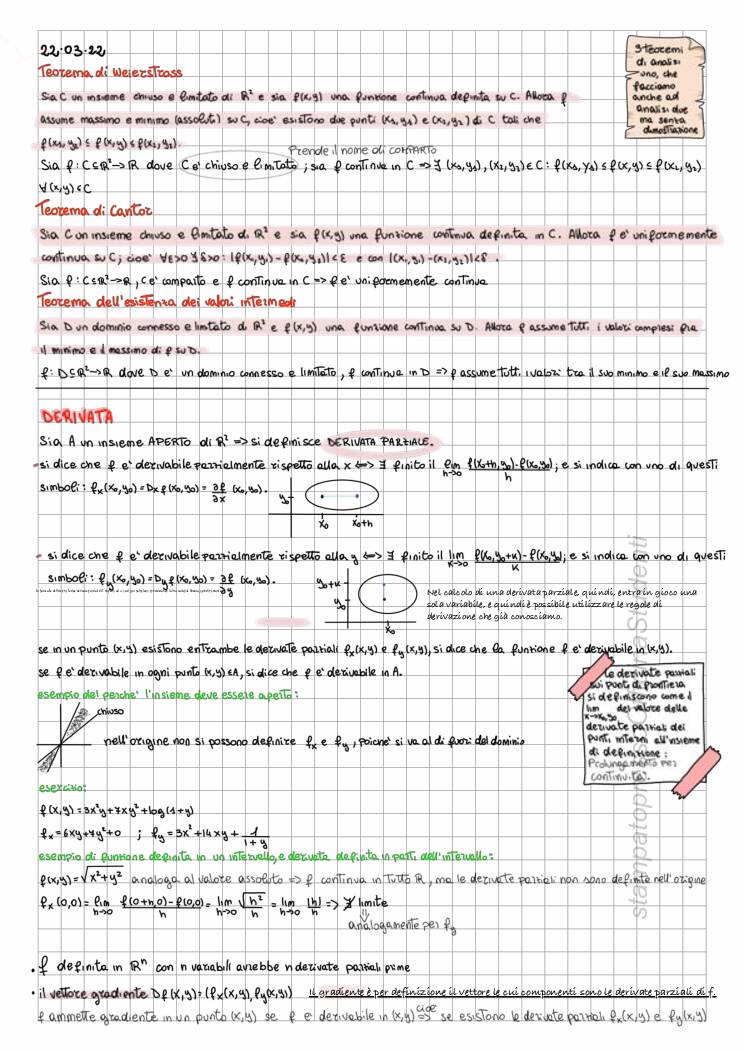 22.03.22
3 teoremi
di analisi
uno, che
facciamo
anche ad
analisi due
ma senza
dimostrazione
Teorema di Weierstrass
Sia C un insieme chiuso e limitato di ℝ² e sia f(x,y) una funzione continua definita su C. Allora f
assume massimo e minimo (assoluti) su C, cioe' esistono due punti (x₁,y₁) e (x₂,y₂) di C tali che
f(x₁,y₁) ≤ f(x,y) ≤ f(x₂,y₂).
Prende il nome di COMPATTO
Sia f: C⊆ℝ²→ℝ dove C e' chiuso e limitato ; sia f continua in C => ∃ (x₁,y₁), (x₂,y₂)∈C: f(x₁,y₁) ≤ f(x,y) ≤ f(x₂,y₂)
∀(x,y)∈C
Teorema di Cantor
Sia C un insieme chiuso e limitato di ℝ² e sia f(x,y) una funzione continua definita in C. Allora f e' uniformemente
continua su C; cioe' ∀ε>0 ∃δ>0: |f(x₁,y₁)-f(x₂,y₂)|<ε e con |(x₁,y₁)-(x₂,y₂)|<δ.
Sia f: C⊆ℝ²→ℝ, C e' compatto e f continua in C => f e' uniformemente continua
Teorema dell'esistenza dei valori intermedi
Sia D un dominio connesso e limitato di ℝ² e f(x,y) una funzione continua su D. Allora f assume tutti i valori compresi fra
il minimo e il massimo di f su D.
f: D⊆ℝ²→ℝ dove D e' un dominio connesso e limitato, f continua in D => f assume tutti i valori tra il suo minimo e il suo massimo
DERIVATA
Sia A un insieme APERTO di ℝ² => si definisce DERIVATA PARZIALE.
- si dice che f e' derivabile parzialmente rispetto alla x <=> ∃ finito il lim h→0 (f(x₀+h,y₀)-f(x₀,y₀))/h ; e si indica con uno di questi
simboli: fx(x₀,y₀) = Dx f(x₀,y₀) = ∂f/∂x (x₀,y₀).
y₀
x₀ x₀+h
- si dice che f e' derivabile parzialmente rispetto alla y <=> ∃ finito il lim k→0 (f(x₀,y₀+k)-f(x₀,y₀))/k ; e si indica con uno di questi
simboli: fy(x₀,y₀) = Dy f(x₀,y₀) = ∂f/∂y (x₀,y₀).
y₀+k
y₀
x₀
Nel calcolo di una derivata parziale, quindi, entra in gioco una
sola variabile, e quindi è possibile utilizzare le regole di
derivazione che già conosciamo.
se in un punto (x,y) esistono entrambe le derivate parziali fx(x,y) e fy(x,y), si dice che la funzione f e' derivabile in (x,y).
se f e' derivabile in ogni punto (x,y)∈A, si dice che f e' derivabile in A.
esempio del perche' l'insieme deve essere aperto:
chiuso
nell'origine non si possono definire fx e fy, poiche' si va al di fuori del dominio
Le derivate parziali
sui punti di frontiera
si definiscono come il
lim x→x₀,y₀ del valore delle
derivate parziali dei
punti interni all'insieme
di definizione:
Prolungamento per
continuita'.
esercizio:
f(x,y) = 3x²y+7xy²+log(1+y)
fx = 6xy+7y²+0 ; fy = 3x²+14xy+ 1/(1+y)
esempio di funzione definita in un intervallo, e derivata definita in parti dell'intervallo:
f(x,y)=√(x²+y²) analoga al valore assoluto => f continua in tutto ℝ, ma le derivate parziali non sono definite nell'origine
fx(0,0) = lim h→0 (f(0+h,0)-f(0,0))/h = lim h→0 √(h²)/h = lim h→0 |h|/h => ∄ limite
⇓
analogamente per fy
• f definita in ℝⁿ con n variabili avrebbe n derivate parziali prime
• il vettore gradiente Df(x,y)=(fx(x,y), fy(x,y)) Il gradiente è per definizione il vettore le cui componenti sono le derivate parziali di f.
f ammette gradiente in un punto (x,y) se f e' derivabile in (x,y) cioe' => se esistono le derivate parziali fx(x,y) e fy(x,y)